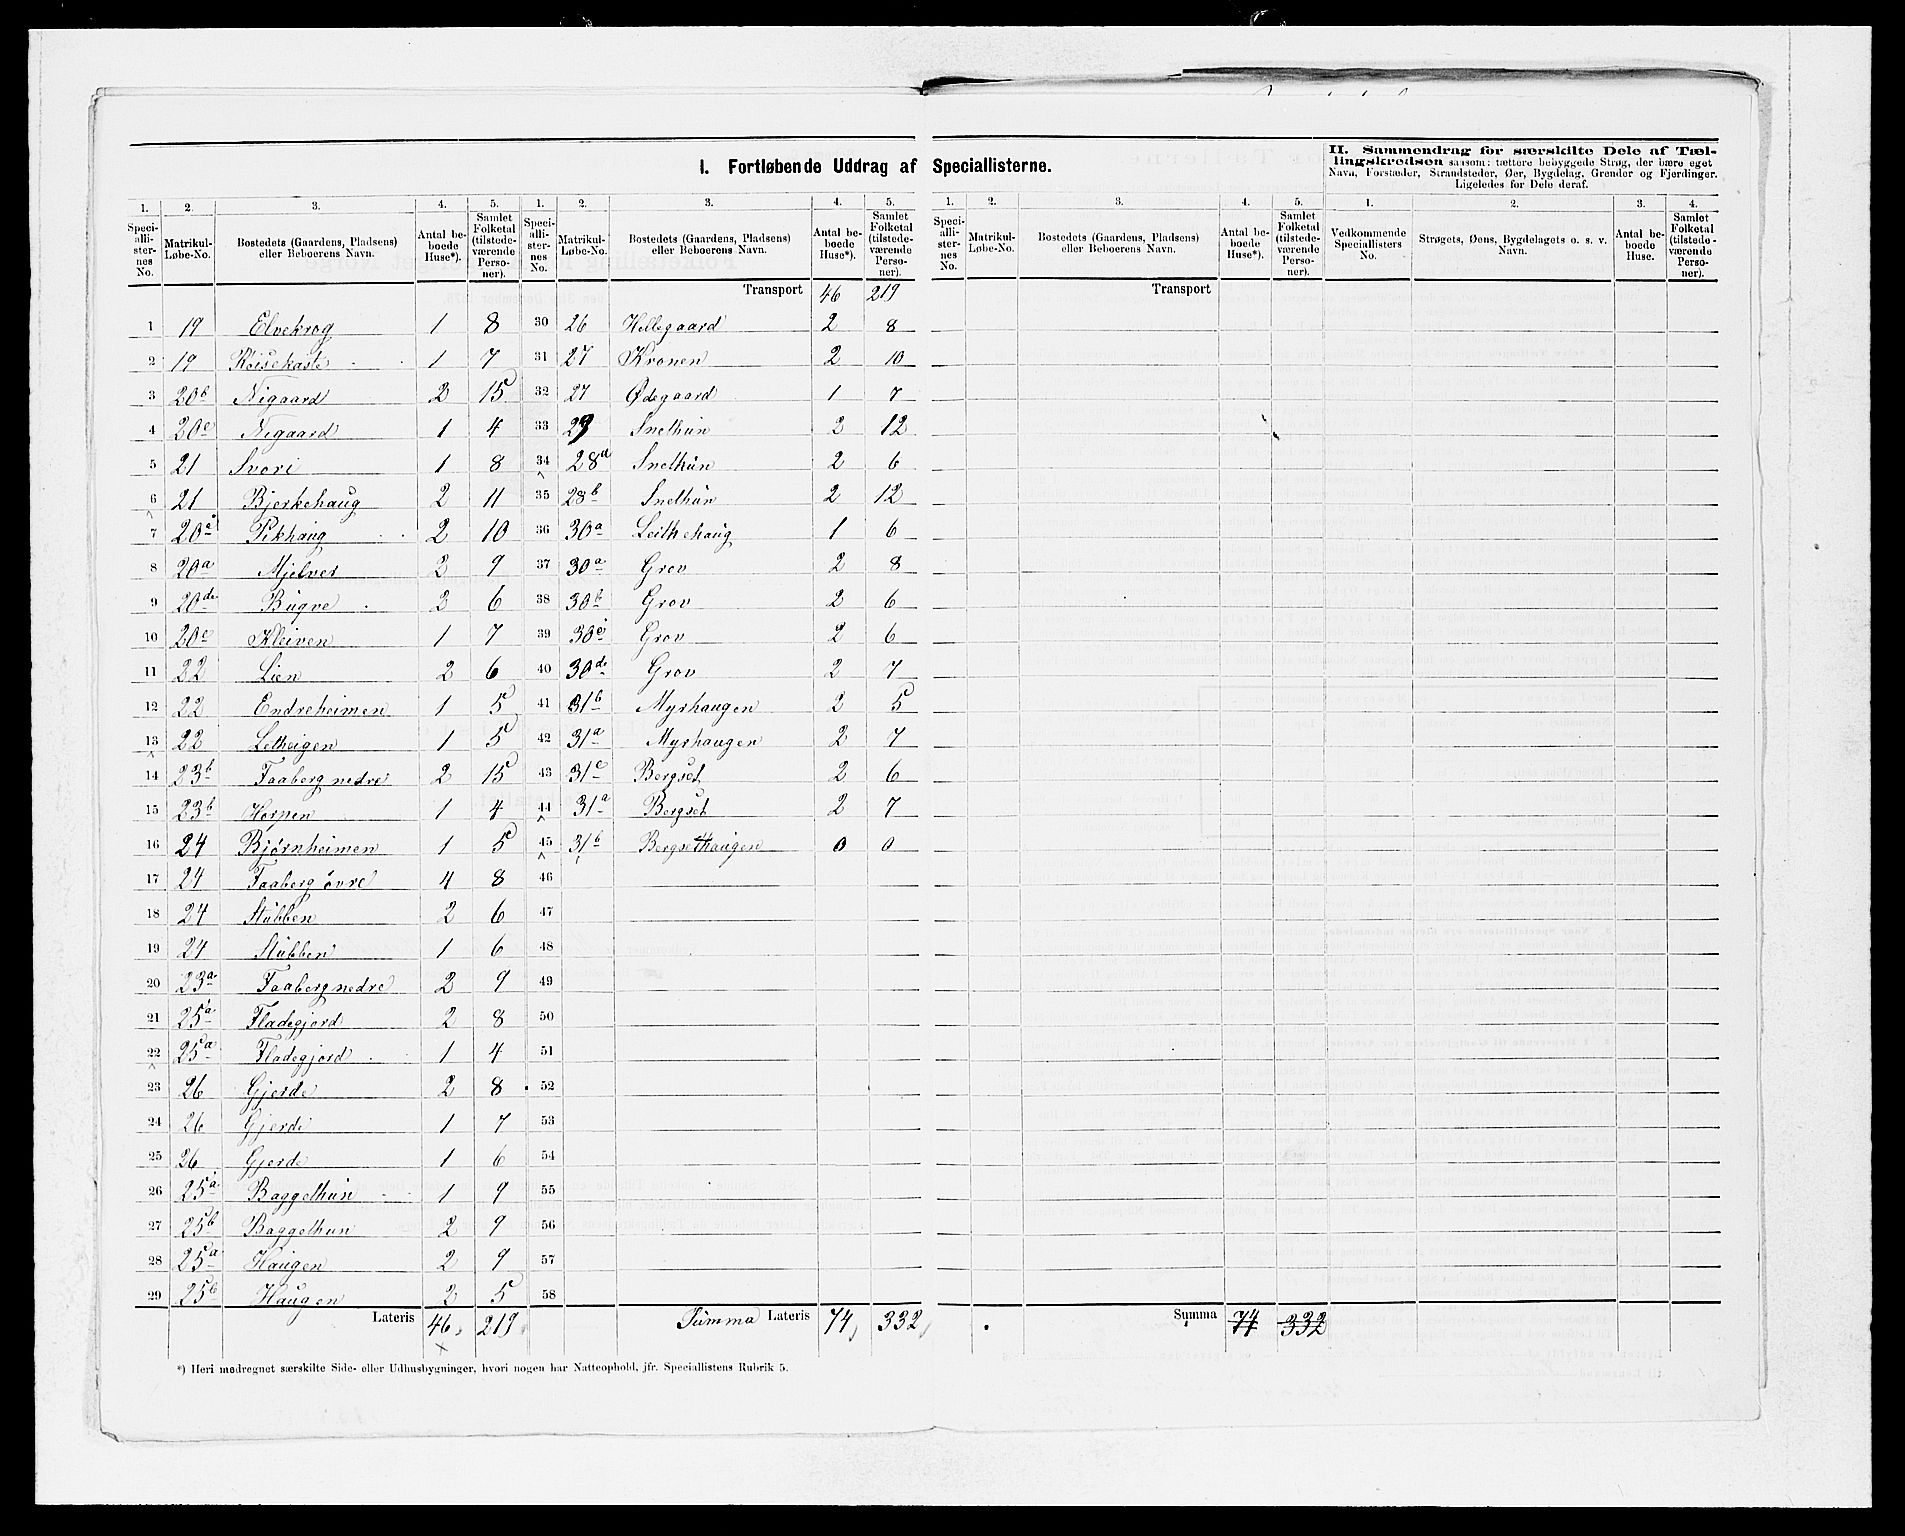 I. Fortløbende Uddrag af Speciallisterne.
II. Sammendrag for særskilte Dele af Tæl-
lingskredsen saasom: tættere bebyggede Strøg, der bære eget
Navn, Forstæder, Strandsteder, Øer, Bygdelag, Grender og Fjerdinger.
Ligeledes for Dele deraf.
1. 2. 3. 4. 5. 1. 2. 3. 4. 5. 1. 2. 3. 4. 5. 1. 2. 3. 4.
Speci-alli-ster-nes No. Matrikul-Løbe-No. Bostedets (Gaardens, Pladsens) eller Beboerens Navn. Antal be-boede Huse*). Samlet Folketal (tilstede-værende Perso-ner).
Speci-alli-ster-nes No. Matrikul-Løbe-No. Bostedets (Gaardens, Pladsens) eller Beboerens Navn. Antal be-boede Huse*). Samlet Folketal (tilstede-værende Perso-ner).
Speci-alli-ster-nes No. Matrikul-Løbe-No. Bostedets (Gaardens, Pladsens) eller Beboerens Navn. Antal be-boede Huse*). Samlet Folketal (tilstede-værende Perso-ner).
Vedkommende Speciallisters No. Strøgets, Øens, Bygdelagets o. s. v. Navn. Antal be-boede Huse. Samlet Folketal (tilstede-værende Perso-ner).
Transport 46 219 Transport
1 19 Elvekrog 1 8 30 26 Hellegaard 2 8
2 19 Røisekaste 1 7 31 27 Kronen 2 10
3 20b Nigaard 2 15 32 27 Ødegaard 1 7
4 20c Nigaard 1 4 33 29 Snethun 2 12
5 21 Svori 1 8 34 28a Snethun 2 6
6 21 Bjerkehaug 2 11 35 28b Snethun 2 12
7 20a Pikhaug 2 10 36 30a Leithehaug 1 6
8 20a Mjelver 2 9 37 30a Grov 2 8
9 20de Bugve 2 6 38 30b Grov 2 6
10 20c Kleiven 1 7 39 30c Grov 2 6
11 22 Lien 2 6 40 30de Grov 2 7
12 22 Endreheimen 1 5 41 31b Myrhaugen 2 5
13 22 Letheigen 1 5 42 31a Myrhaugen 2 7
14 23b Faaberg nedre 2 15 43 31c Bergset 2 6
15 23b Horpen 1 4 44 31a Bergset 2 7
16 24 Bjørnheimen 1 5 45 31b Bergsethaugen 0 0
17 24 Faaberg øvre 4 8 46
18 24 Stubben 2 6 47
19 24 Stubben 1 6 48
20 23a Faaberg nedre 2 9 49
21 25a Fladegjord 2 8 50
22 25a Fladegjord 1 4 51
23 26 Gjerde 2 8 52
24 26 Gjerde 1 7 53
25 26 Gjerde 1 6 54
26 25a Baggethun 1 9 55
27 25b Baggethun 2 9 56
28 25a Haugen 2 9 57
29 25b Haugen 2 5 58
Lateris 46 219 Summa Lateris 74 332 Summa 74 332
*) Heri medregnet særskilte Side- eller Udhusbygninger, hvori nogen har Natteophold, jfr. Speciallistens Rubrik 5.